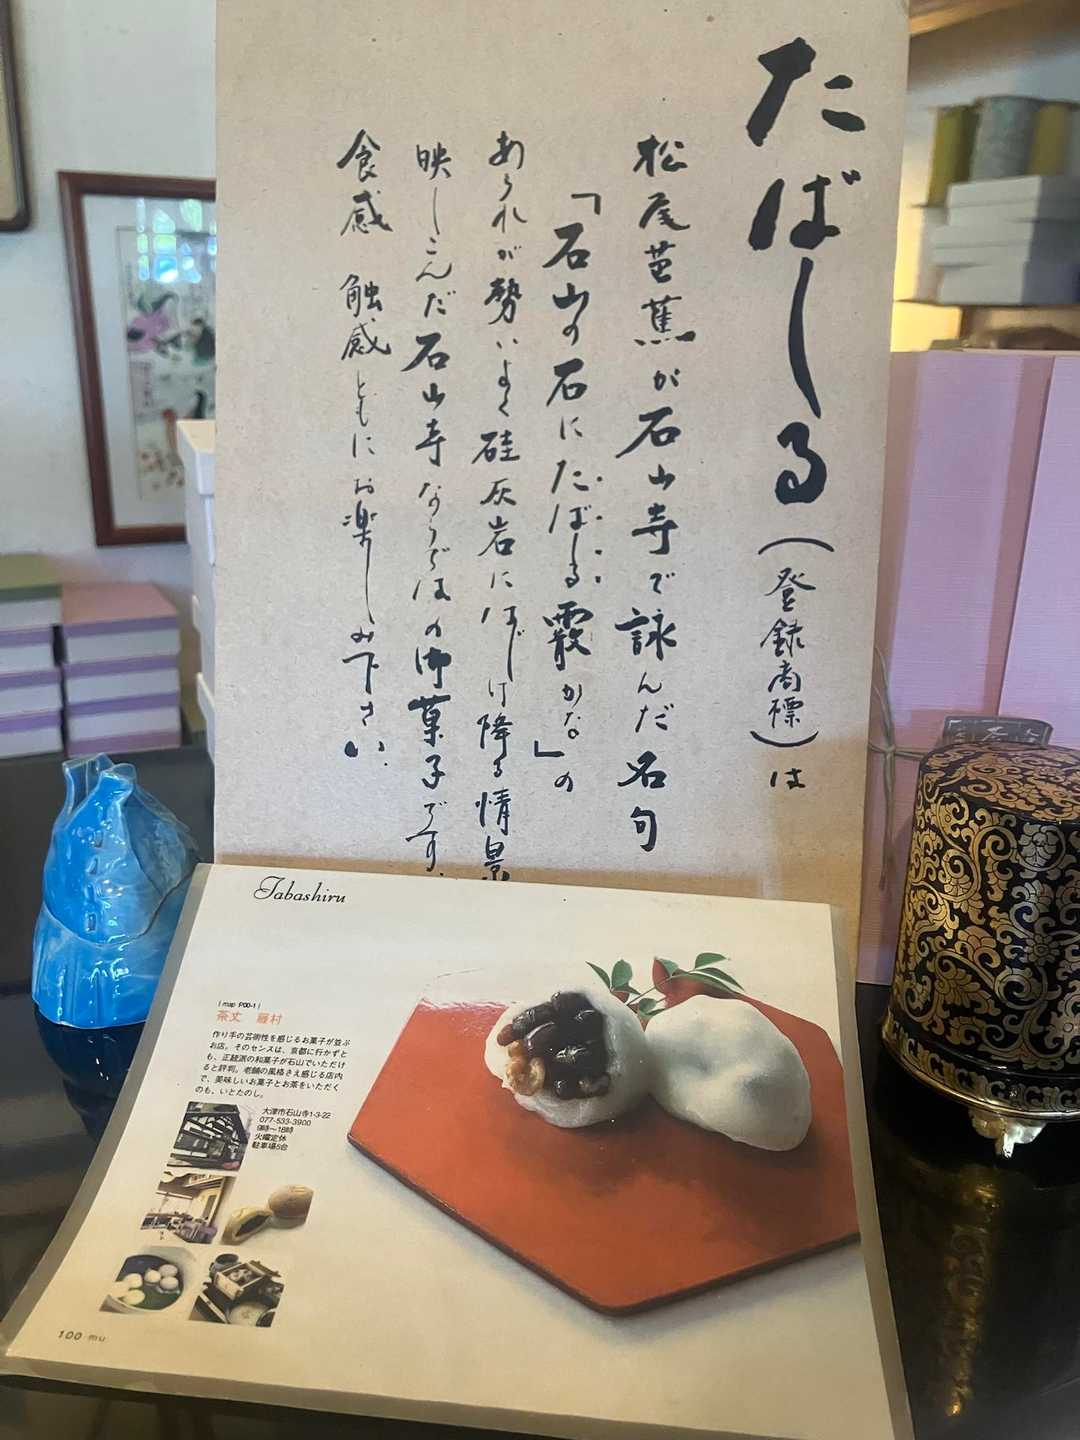 たばしる(登録商標)は
松尾芭蕉が石山寺で詠んだ名句
「石山の石にたばしる霰かな」の
あられが勢いよく硅灰岩にはじけ降る情景
映しこんだ石山寺ならではの御菓子です。
食感 触感ともにお楽しみ下さい。
Tabashiru
| map P00-1 |
茶丈 藤村
作り手の芸術性を感じるお菓子が並ぶ
お店。そのセンスは、京都に行かずと
も、正統派の和菓子が石山でいただけ
ると評判。老舗の風格さえ感じる店内
で、美味しいお菓子とお茶をいただく
のも、いとたのし。
大津市石山寺1-3-22
077-533-3900
9時〜18時
火曜定休
駐車場5台
100 mu